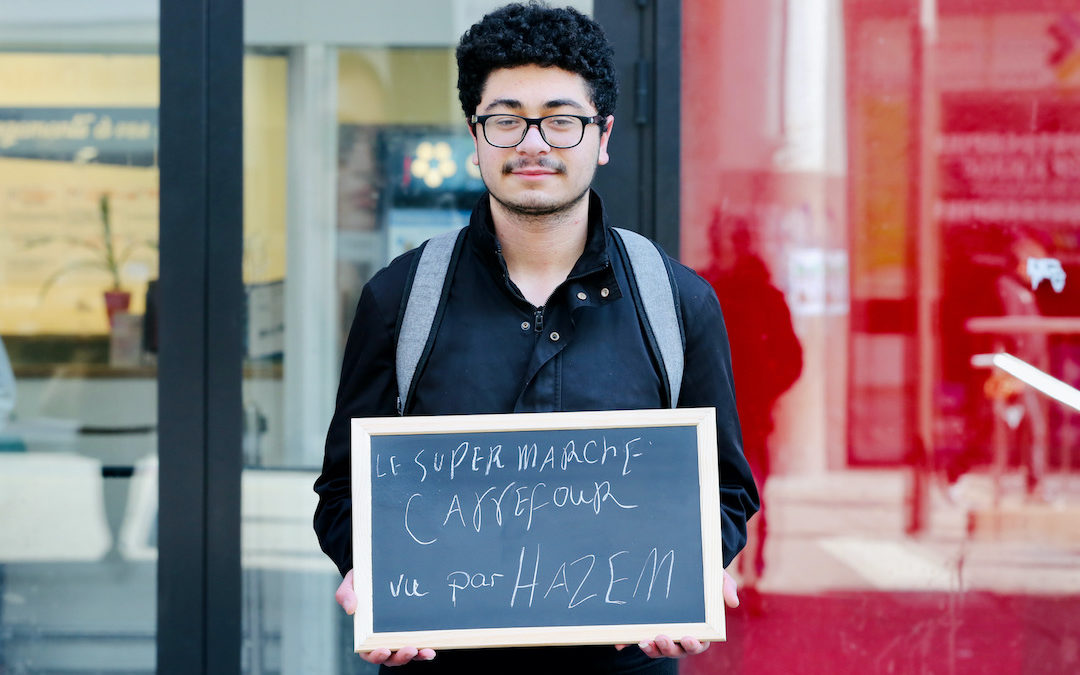 LE SUPERMARCHE
CARREFOUR
vu par HAZEM